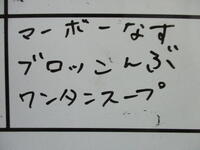 マーボーなす
ブロッこんぶ
ワンタンスープ